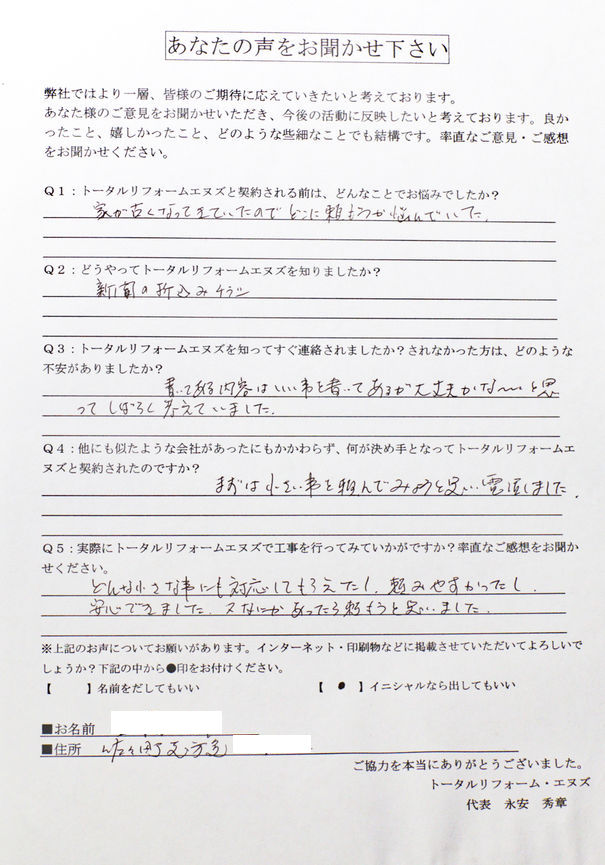 あなたの声をお聞かせ下さい
弊社ではより一層、皆様のご期待に応えていきたいと考えております。
あなた様のご意見をお聞かせいただき、今後の活動に反映したいと考えております。良か
ったこと、嬉しかったこと、どのような些細なことでも結構です。率直なご意見・ご感想
をお聞かせください。
Q1：トータルリフォームエヌズと契約される前は、どんなことでお悩みでしたか？
家が古くなってきていたのでどこに頼もうか悩んでいた。
Q2：どうやってトータルリフォームエヌズを知りましたか？
新聞の折込みチラシ
Q3：トータルリフォームエヌズを知ってすぐ連絡されましたか？されなかった方は、どのような
不安がありましたか？
書いてある内容はいい事を書いてあるが大丈夫かな〜と思
ってしばらく考えていました。
Q4：他にも似たような会社があったにもかかわらず、何が決め手となってトータルリフォームエ
ヌズと契約されたのですか？
まずは小さい事を頼んでみようと思い電話しました。
Q5：実際にトータルリフォームエヌズで工事を行ってみていかがですか？率直なご感想をお聞か
せください。
どんな小さな事にも対応してもらえたし、頼みやすかったし、
安心できました。又なにかあったら頼もうと思いました。
※上記のお声についてお願いがあります。インターネット・印刷物などに掲載させていただいてよろしいで
しょうか？下記の中から●印をお付けください。
【　　】名前をだしてもいい　【 ● 】イニシャルなら出してもいい
■お名前
■住所
ご協力を本当にありがとうございました。
トータルリフォーム・エヌズ
代表　永安　秀章